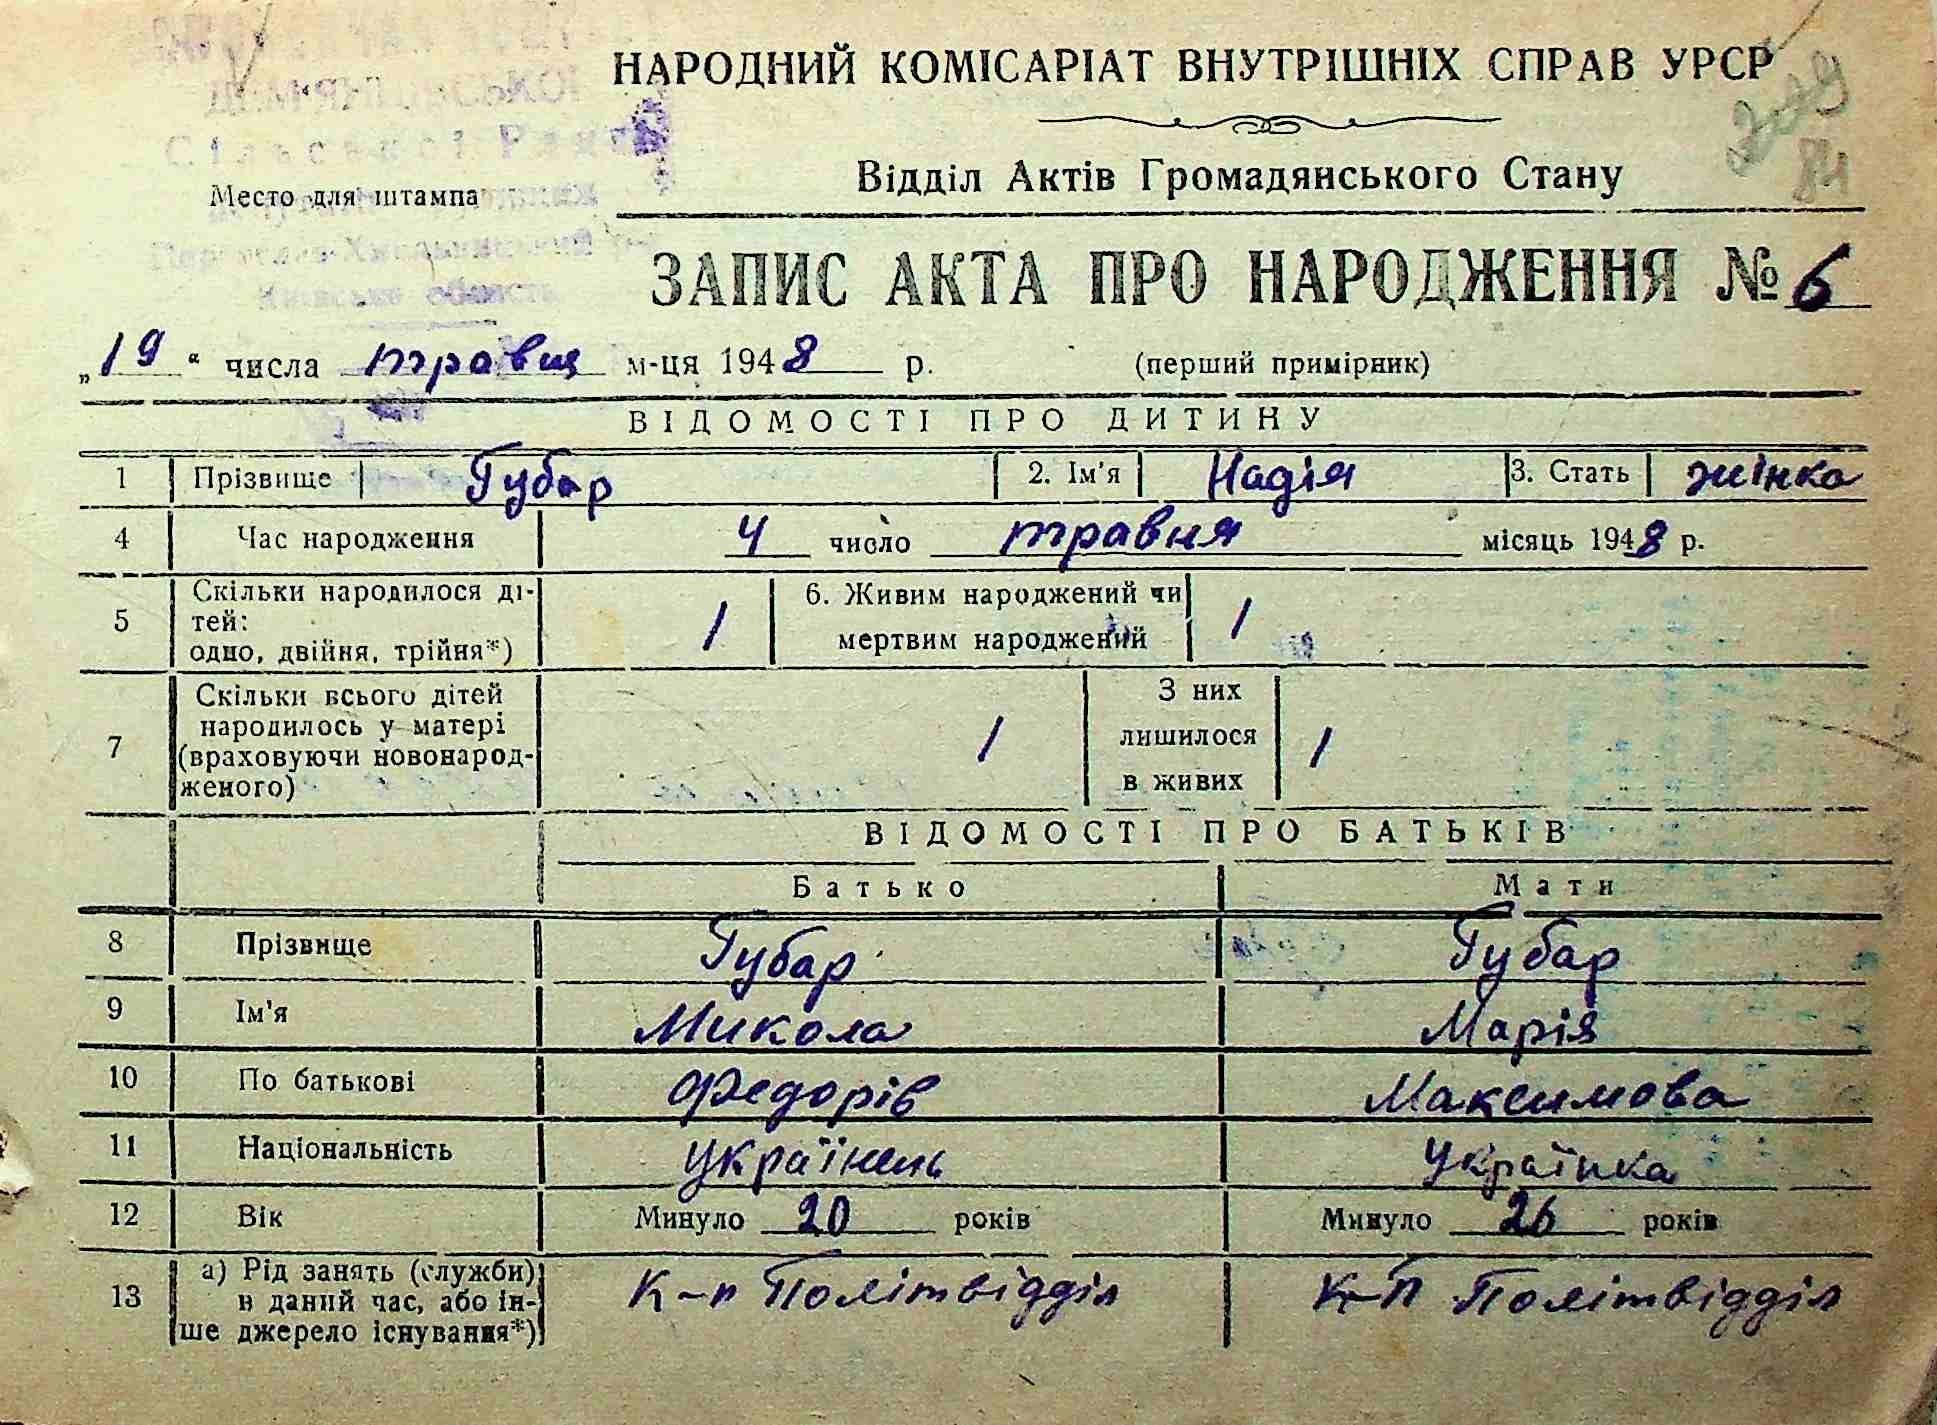 НАРОДНИЙ КОМІСАРІАТ ВНУТРІШНІХ СПРАВ УРСР
Сільської Ради
Відділ Актів Громадянського Стану
84
Место для штампа
Переяслав-Хмельницький
Київська область
ЗАПИС АКТА ПРО НАРОДЖЕННЯ № 6
„19“ числа травня м-ця 1948 р. (перший примірник)
ВІДОМОСТІ ПРО ДИТИНУ
1 Прізвище Губар 2. Ім'я Надія 3. Стать жінка
4 Час народження 4 число травня місяць 1948 р.
5 Скільки народилося ді-
тей:
одно, двійня, трійня*) 1 6. Живим народжений чи
мертвим народжений 1
7 Скільки всього дітей
народилось у матері
(враховуючи новонарод-
женого) 1 З них
лишилося
в живих 1
ВІДОМОСТІ ПРО БАТЬКІВ
Батько Мати
8 Прізвище Губар Губар
9 Ім'я Микола Марія
10 По батькові Федорів Максимова
11 Національність українець українка
12 Вік Минуло 20 років Минуло 26 років
13 а) Рід занять (служби)
в даний час, або ін-
ше джерело існування*) К-п Політвідділ К-П Політвідділ